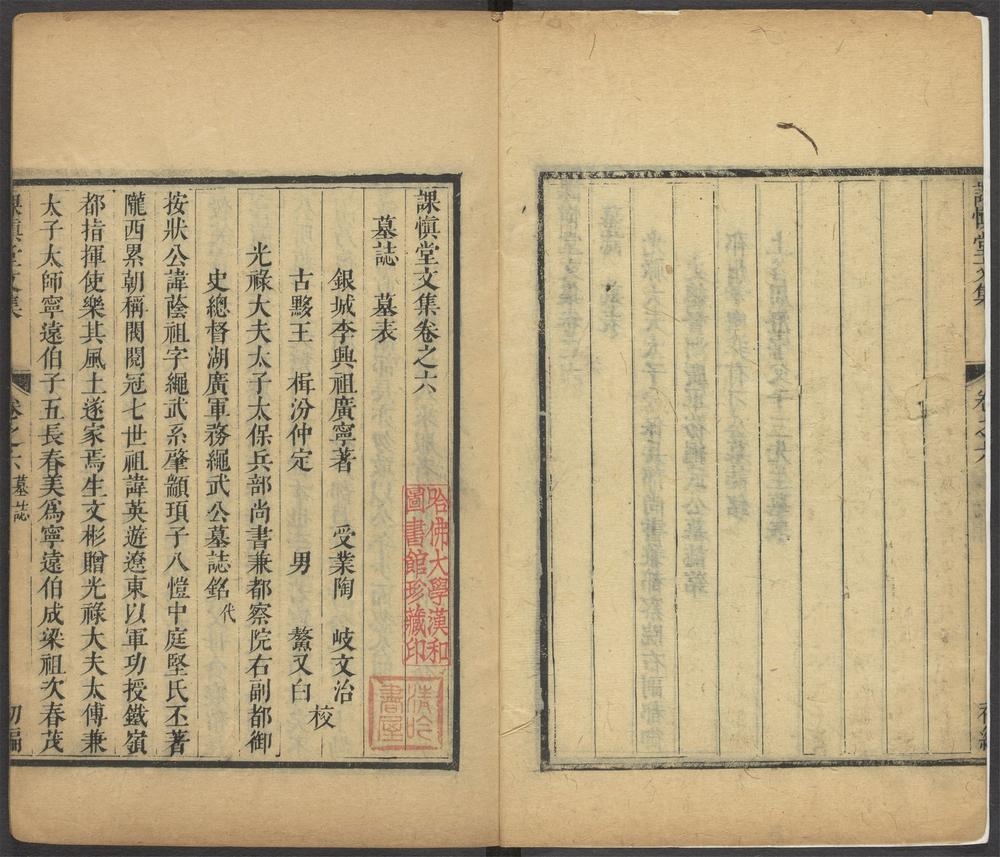 課慎堂文集
卷之六
初編
課慎堂文集卷之六
墓誌 墓表
銀城李興祖廣寧著 受業陶 岐文治
古黟王 楫汾仲定 男 鰲又白 校
光祿大夫太子太保兵部尚書兼都察院右副都御
史總督湖廣軍務繩武公墓誌銘 代
按狀公諱蔭祖字繩武系肇顓頊子八愷中庭堅氏丕著
隴西累朝稱閥閱冠七世祖諱英遊遼東以軍功授鐵嶺
都指揮使樂其風土遂家焉生文彬贈光祿大夫太傅兼
太子太師寧遠伯子五長春美爲寧遠伯成梁祖次春茂
課慎堂文集
卷之六 墓誌
初編
哈佛大學漢和
圖書館珍藏印
書屋